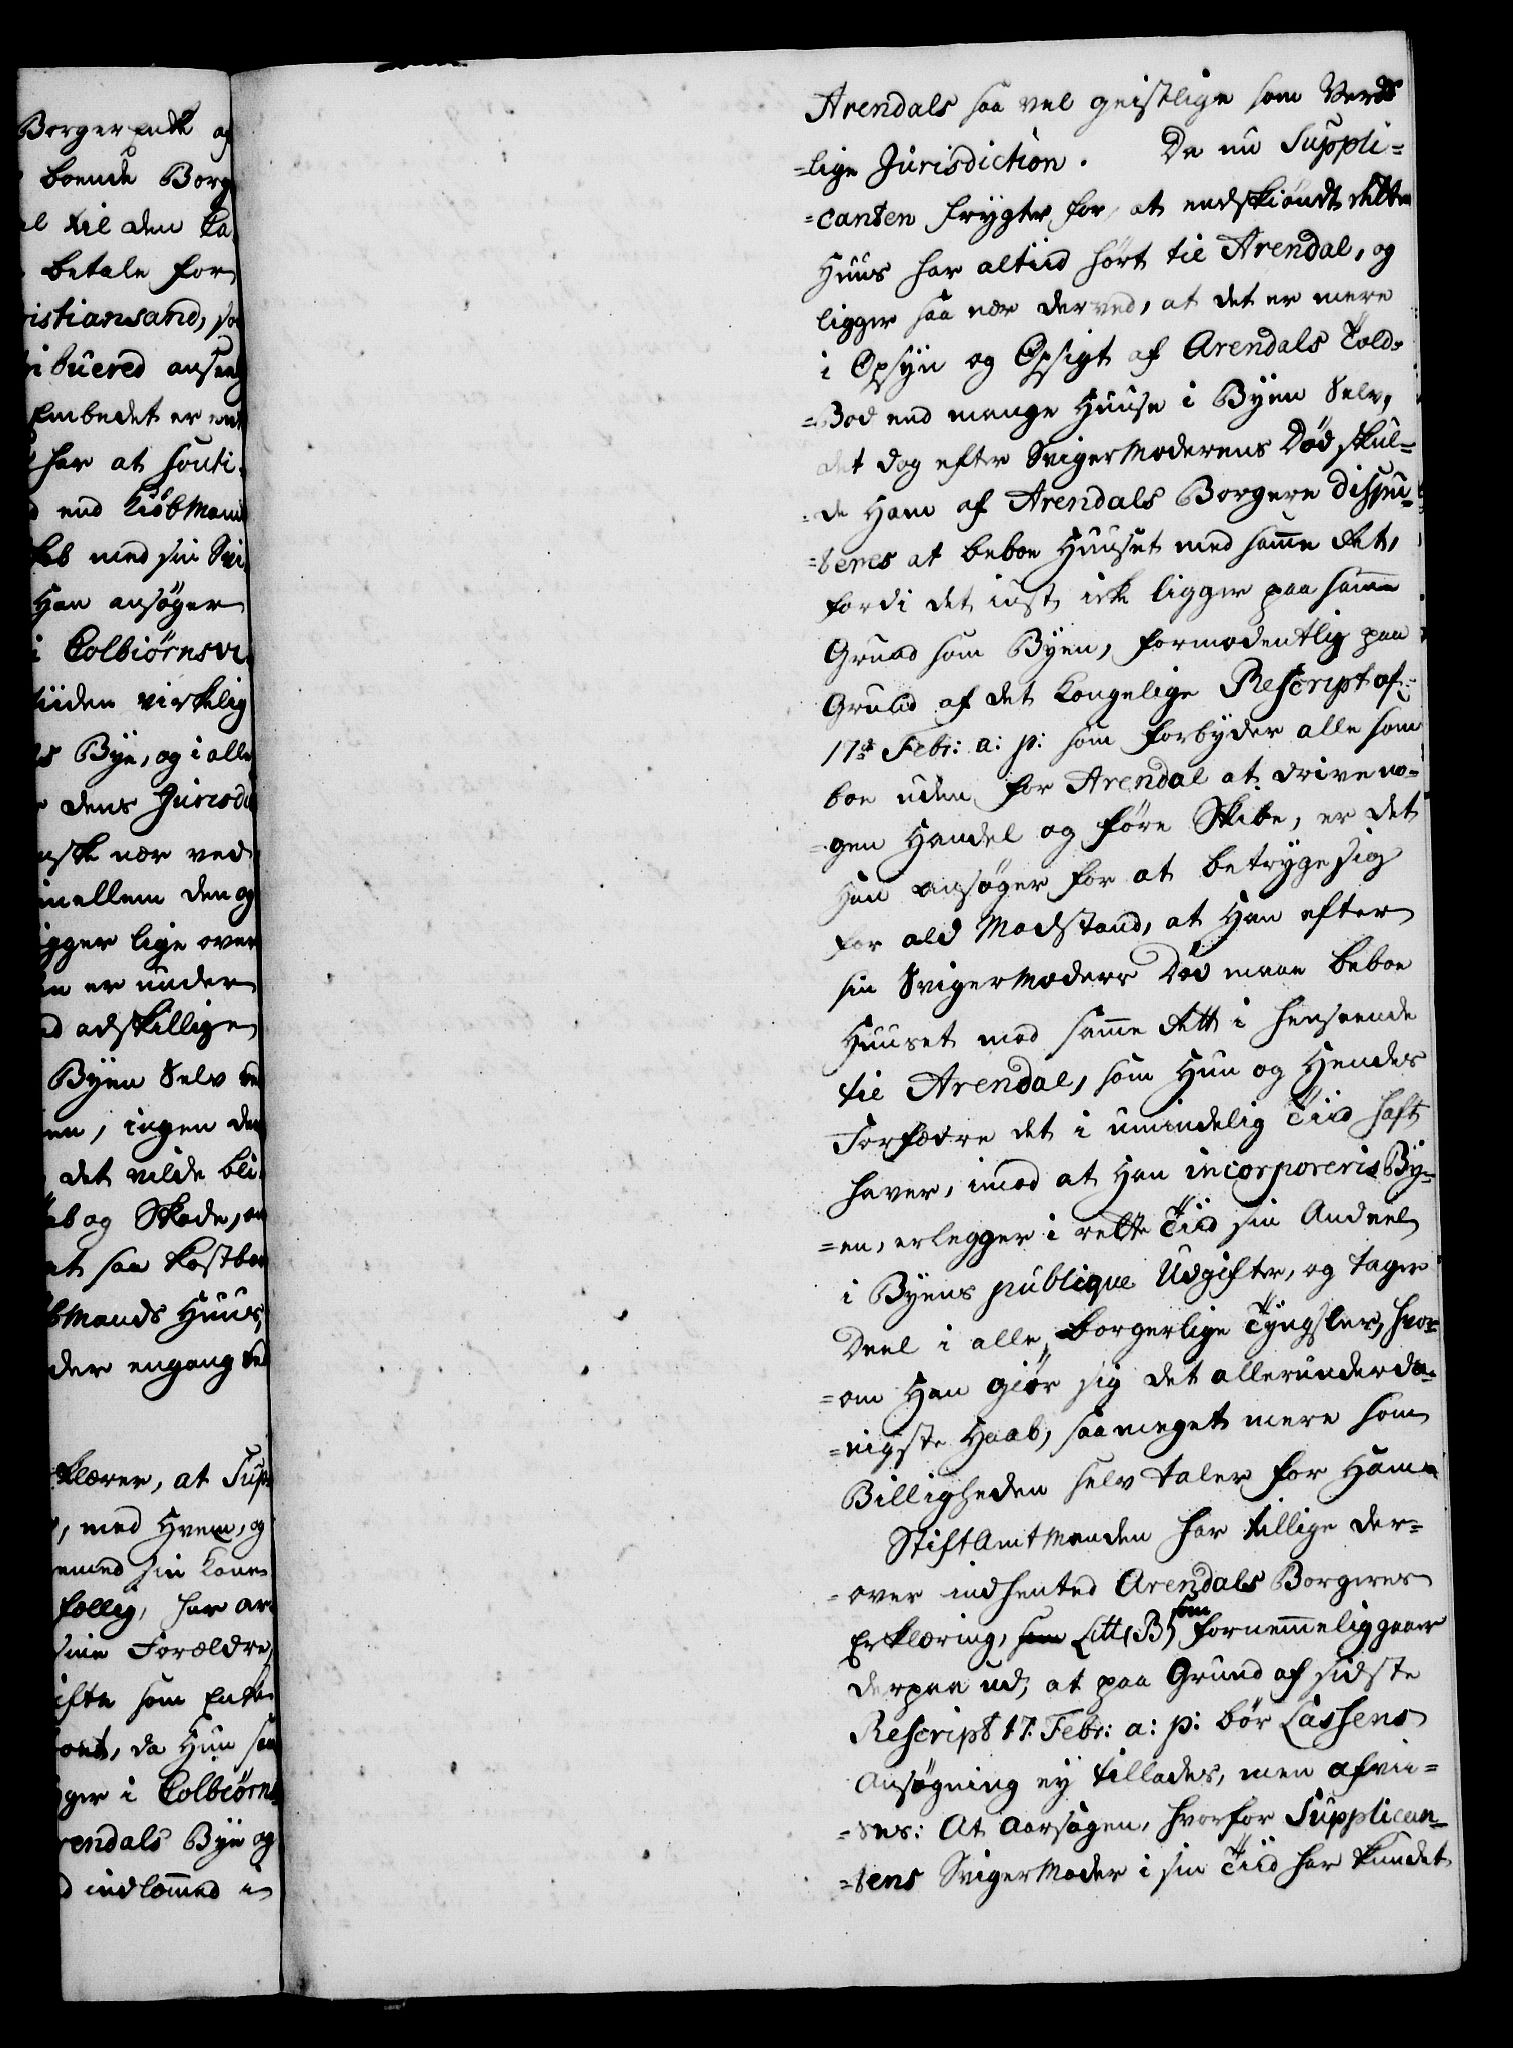 Borger Enke og
boende Borg
til den Ca
betale for
ristiansand, so
ribuered anseeg
Embedet er
har at souti-
end Kiøb Mand
med sin Svi
Han ansøger
i Colbiørnsvi
tiiden virkelig
s Bye, og i alle
dens Jurisdi
nær ved
imellem den og
igger lige over
er under
adskillige
Byen Selv
en, ingen den
det vilde bli
og Skade,
at saa kostbar
bMands Huus,
der engang
klærer, at Sup
, med Hvem, og
med sin Kone
fællig, har ar
sine Forældre
som Enke
, da Hun
ger i Colbiørns
rendals Bye og
indlemmed i
Arendals saa vel geistlige som Verds
=lige Jurisdiction. Da nu Suppli=
=canten frygter for, at endskiøndt dette
Huus har altiid hørt til Arendal, og
ligger saa nær derved, at det er mere
i Opsyn og Opsigt af Arendals Told=
=Bod end mange Huuse i Byen Selv,
det dog efter Sviger Moderens Død skul=
=de Ham af Arendals Borgere dispu=
=teres at beboe Huuset med samme Ret,
fordi det iust ikke ligger paa samme
Grund som Byen, formodentlig paa
Grund af det Kongelige Rescript af
17de Febr: a: p: som forbyder alle som
boe uden for Arendal at drive no=
=gen Handel og føre Skibe, er det
Han ansøger for at betryge sig
for ald Modstand, at Han efter
sin Sviger Moders Død maae beboe
Huuset med samme Rett i henseende
til Arendal, som Hun og Hendes
Forfædre det i umindelig Tiid haft
haver, imod at Han incorporeris By=
=en, erlegger i rette Tiid sin Andeel
i Byens publique Udgifter, og tager
Deel i alle borgerlige Tyngsler, hvor=
=om Han giør sig det allerunderda=
=nigste Haab, saa meget mere som
Billigheden selv taler for Ham.
StiftAmtManden har tillige der=
=over indhented Arendals Borgeres
Erklæring, som Litt (B) som fornemmelig gaaer
derpaa ud, at paa Grund af sidste
Rescript 17. Febr: a: p: bør Lassens
Ansøgning ey tillades, men afvii=
=ses: At Aarsagen, hvorfor Supplican=
=tens Sviger Moder i sin Tiid har kundet